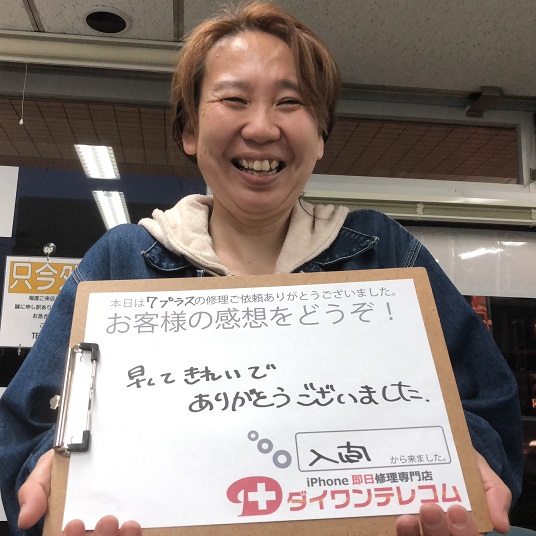 本日は7プラスの修理ご依頼ありがとうございました。
お客様の感想をどうぞ！
早くて きれいで
ありがとうございました.
入間 から来ました。
iPhone 即日修理専門店
ダイワンテレコム
只今